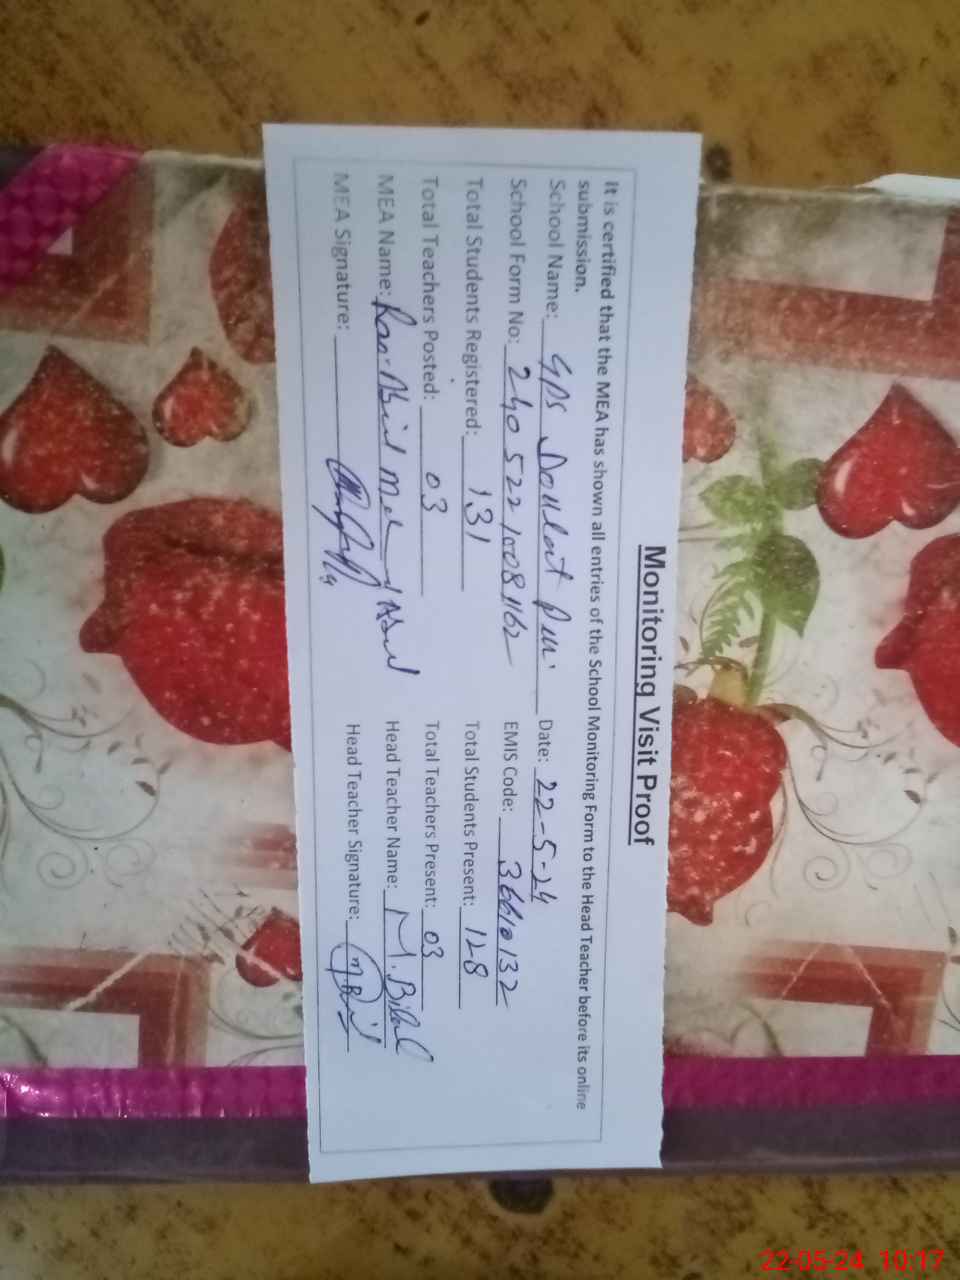 Monitoring Visit Proof
It is certified that the MEA has shown all entries of the School Monitoring Form to the Head Teacher before its online
submission.
School Name: GPS Doulat Date: 22-5-24
School Form No: 240 522 1008 1162 EMIS Code: 36610132
Total Students Registered: 131 Total Students Present: 128
Total Teachers Posted: 03 Total Teachers Present: 03
MEA Name: Head Teacher Name: M. Bilal
MEA Signature: Head Teacher Signature:
22-05-24 10:17